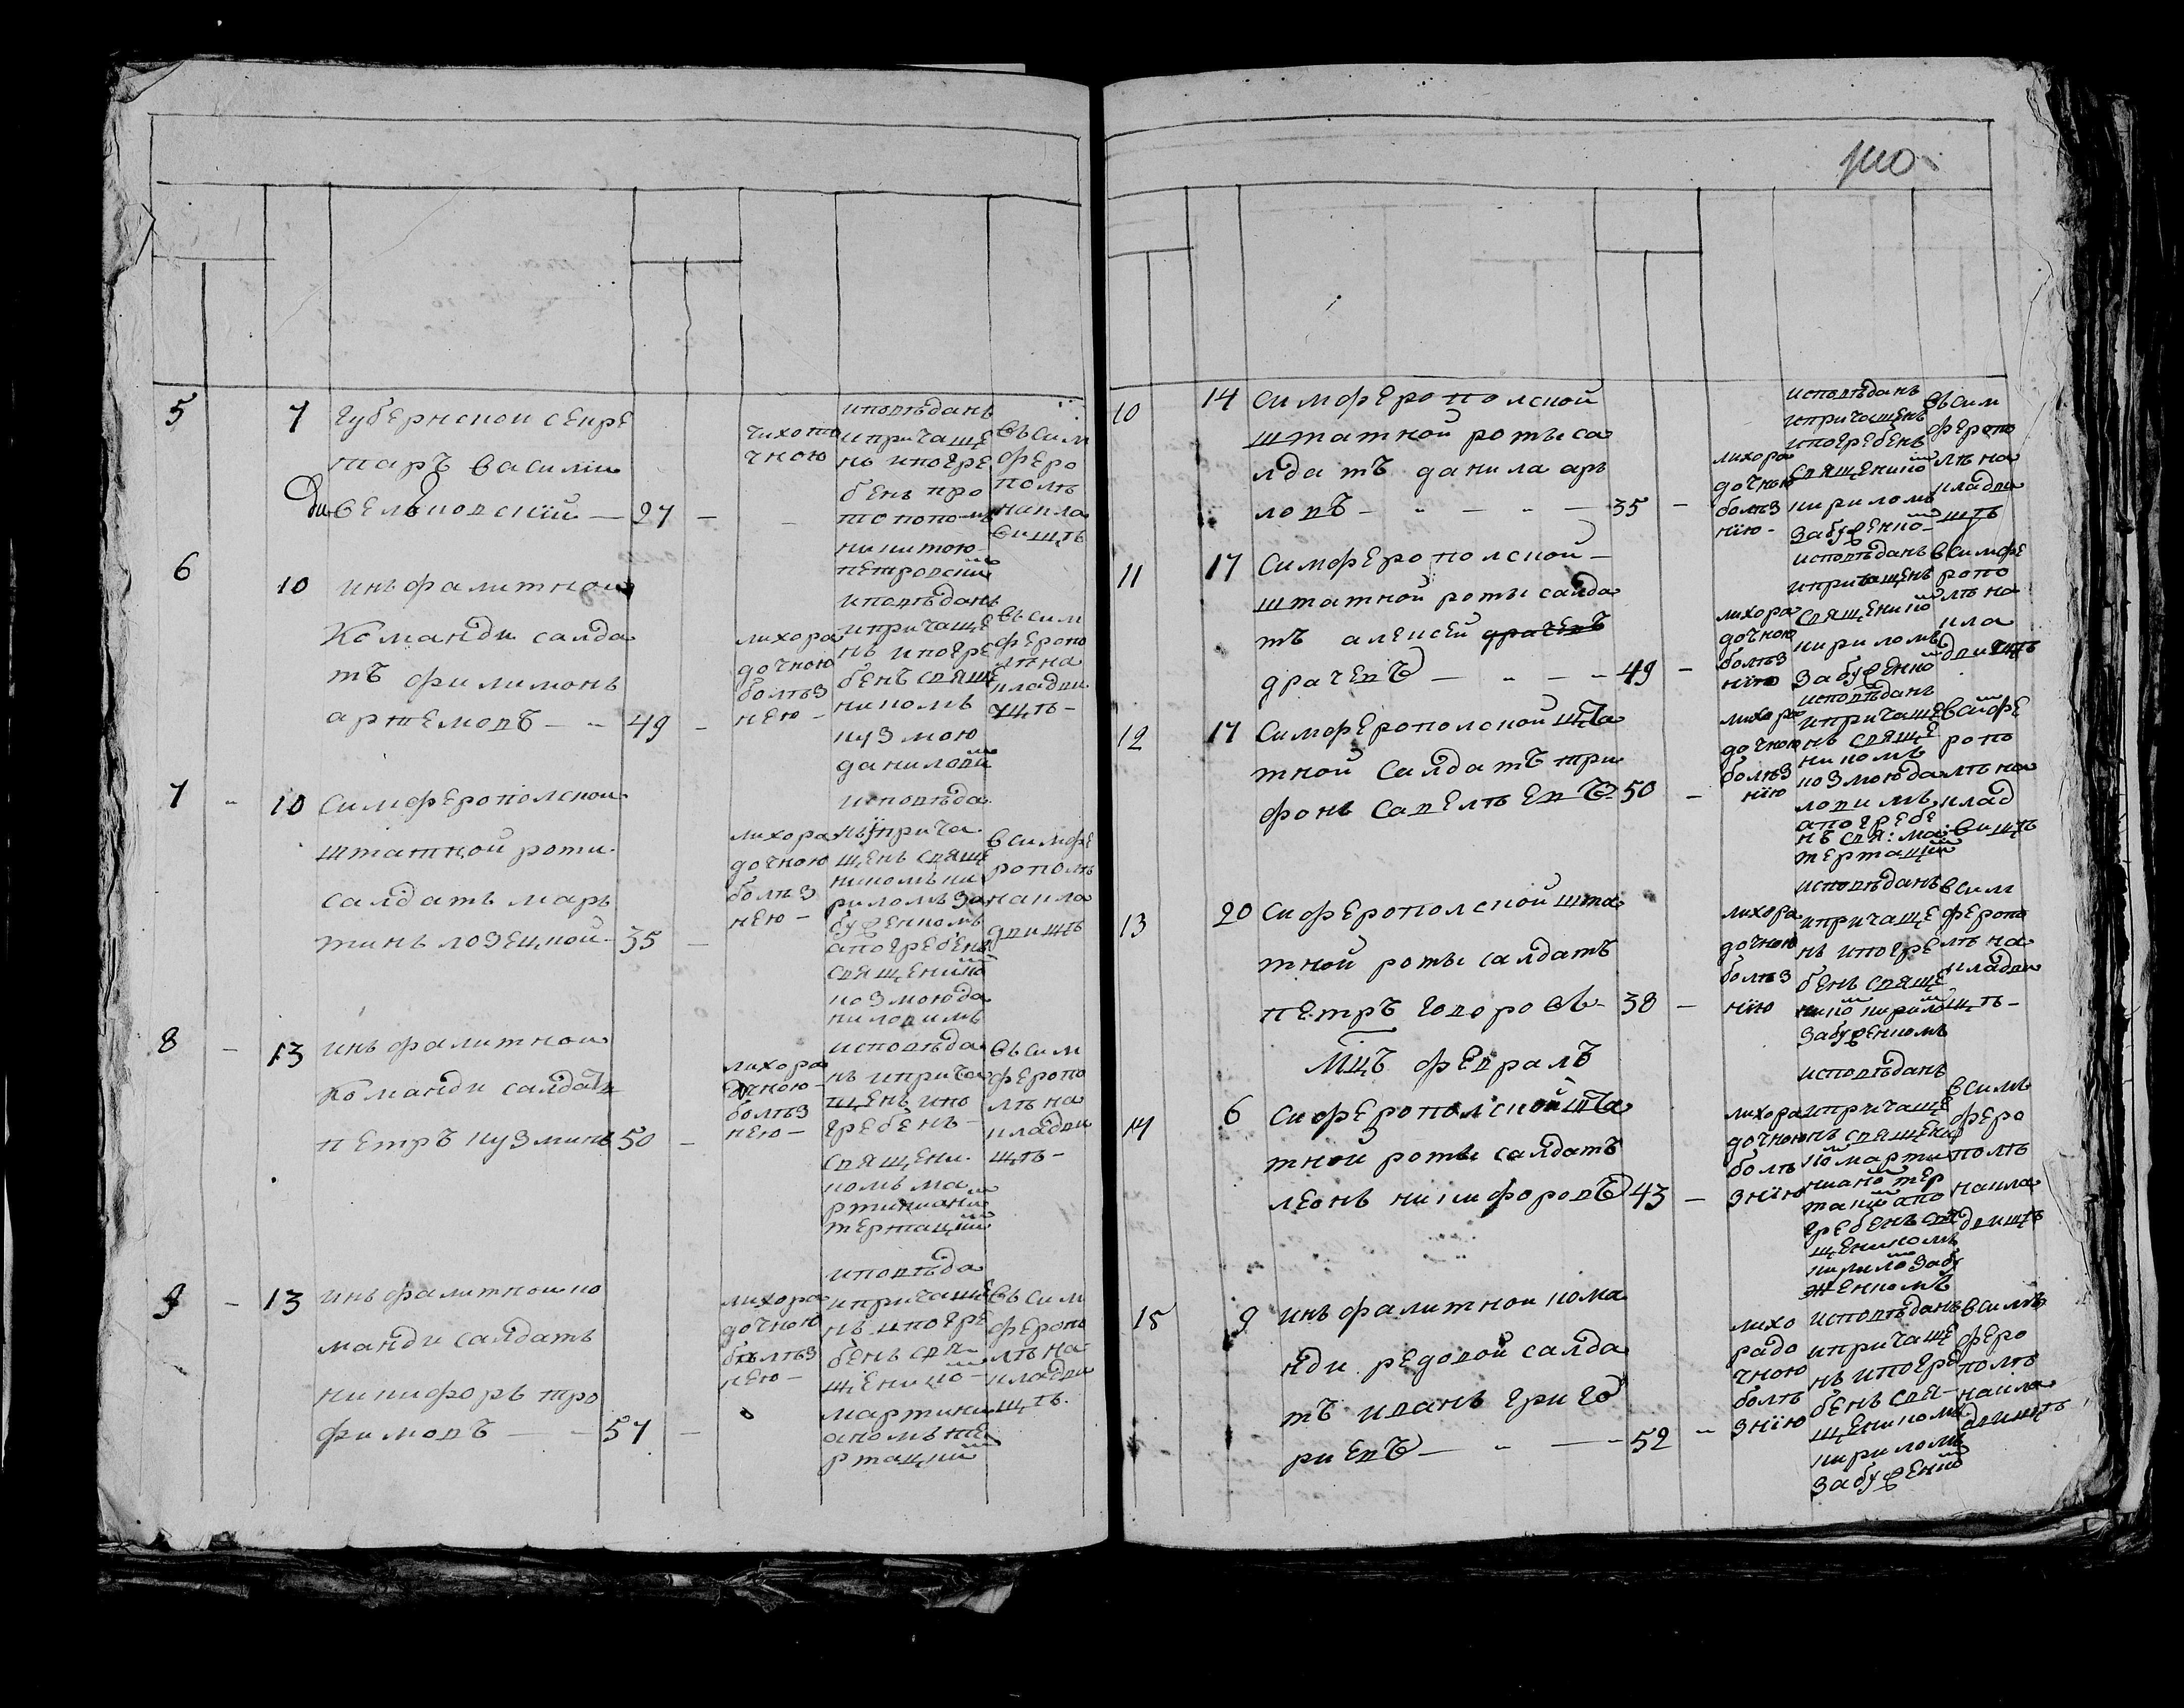 5
7
губернской секре
таръ василій
вельковскій — 27 —
чихото
чною
иповѣданъ
и причаще
нъ и погре
бенъ про
топопомъ
никитою
петровски
въ сим
феро
полѣ
на кла
вищѣ
6
10
инъфалитной
команди салда
тъ филимонъ
артемовъ — 49 —
лихора
дочною
болѣз
нею —
иповѣданъ
и причаще
нъ и погре
бенъ свяще
никомъ
кузмою
данилови
въ сим
феропо
лѣ на
кладви
щѣ —
7
10
симферополской
штатной роти
салдатъ мар
тинъ лозецкой — 35 —
лихора
дочною
болѣз
нею —
исповѣда
нъ и прича
щенъ свяще
никомъ ки
риломъ за
буженкомъ
а погребенъ
священико
козмою да
ниловимъ
в симфе
рополѣ
на кла
двищѣ
8 —
13
инъфалитной
команди салдатъ
петръ кузминъ 50 —
лихора
дочною
болѣз
нею —
исповѣда
нъ и прича
щенъ и по
гребенъ
священи
комъ ма
ртиниани
тертаций
въ сим
феропо
лѣ на
кладви
щѣ —
9 —
13
инъфалитной ко
манди салдатъ
никифоръ тро
фимовъ — 57 —
лихора
дочною
болѣз
нею —
иповѣда
и причаще
нъ и погре
бенъ свя
щенико
мартини
аномъ те
ртаций
въ сим
феропо
лѣ на
кладви
щѣ.
10
14
симферополской
штатной роты са
лдатъ данила ар
ловъ — 35 —
лихора
дочною
болѣз
нію —
исповѣданъ
и причащенъ
и погребенъ
священико
кириломъ
забуженко
въ сим
феропо
лѣ на
кладви
щѣ
11
17
симферополской —
штатной роты салда
тъ алексей драчевъ
драчевъ — 49 —
лихора
дочною
болѣз
нію
исповѣданъ
и причащенъ
священико
кириломъ
забуженко
в симфе
ропо
лѣ на
кла
двищѣ
12
17
симферополской шта
тной салдатъ три
фонъ савелъевъ 50 —
лихора
дочною
болѣз
нію
исповѣданъ
и причаще
нъ свяще
никомъ
козмою да
ловимъ
а погребе
нъ свя: ма
тертаций
в симфе
ропо
лѣ на
клад
вищѣ
13
20
сиферополской шта
тной роты салдатъ
петръ годоровъ — 38 —
лихора
дочною
болѣз
нію
исповѣданъ
и причаще
нъ и погре
бенъ свяще
нико кирило
забуженкомъ
в сим
феропо
лѣ на
кладви
щѣ —
Мцъ февралъ
14
6
сиферополской шта
тной роты салдатъ
леонъ никифоровъ 43 —
лихора
дочною
болѣ
знію
исповѣданъ
и причаще
нъ священи
ко марти
ниано тер
таций а по
гребенъ свя
щеникомъ
кирило забу
женкомъ
в симъ
феро
полѣ
на кла
двищѣ
15
9
инъфалитной кома
нди редовой салда
тъ иванъ григо
риевъ — 52 —
лихо
радо
чною
болѣ
знію
исповѣданъ
и причаще
нъ и погре
бенъ свя
щеникомъ
кириломъ
забуженко
в симъ
феро
полѣ
на кла
двищѣ